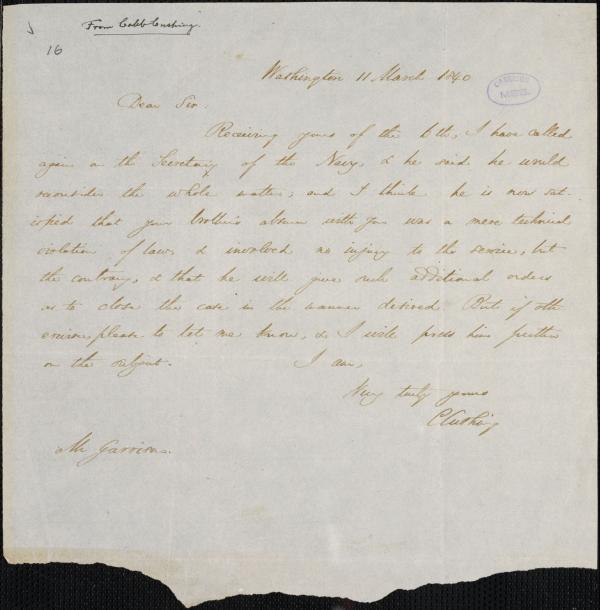 From Caleb Cushing.
16
Washington 11 March 1840
Dear Sir:
Receiving yours of the 6th, I have called
again on the Secretary of the Navy, & he said he would
reconsider the whole matter; and I think he is now sat-
isfied that your brother's absence with you was a mere technical
violation of law, & involved no injury to the service, but
the contrary, & that he will give such additional orders
as to close the case in the manner desired. But if oth-
erwise, please to let me know, & I will press him further
on the subject. I am,
Very truly yours
C Cushing
Mr Garrison.